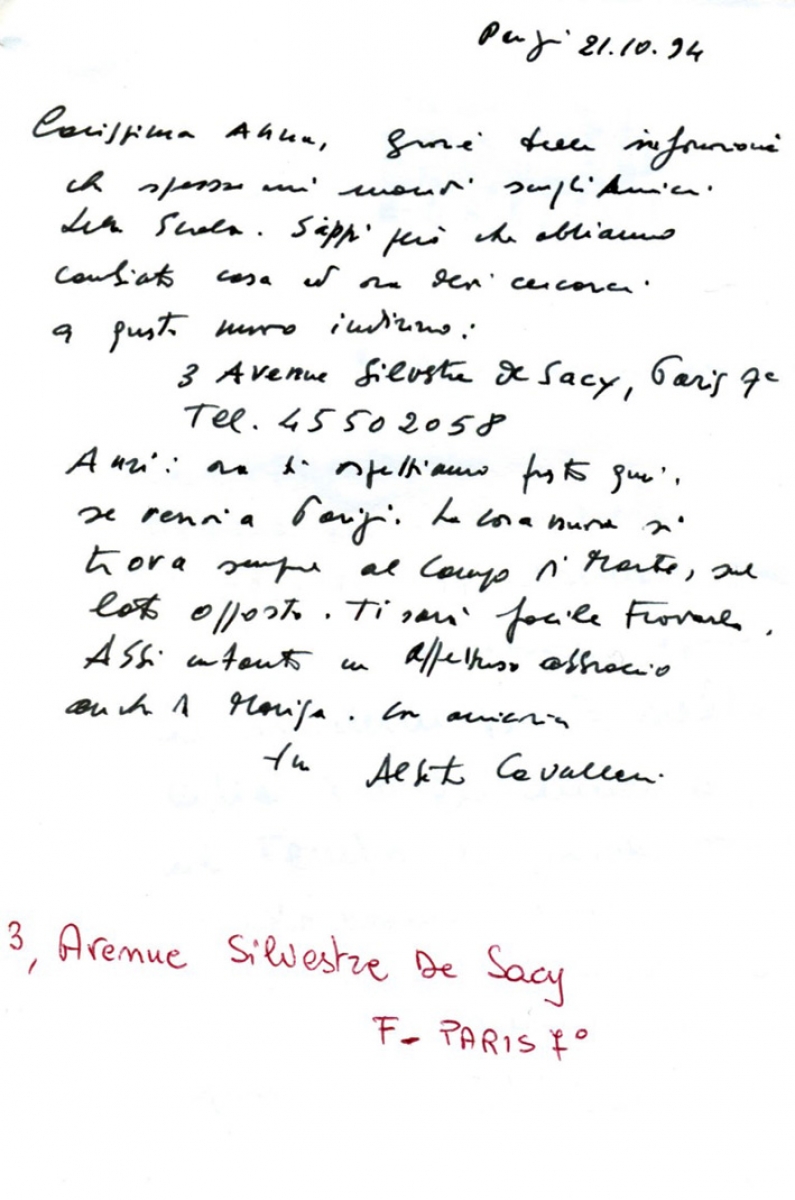 Parigi 21.10.94
Carissima Anna, grazie delle informazioni
che spesso mi mandi sugli Amici
della Scala. Sappi però che abbiamo
cambiato casa ed ora devi cercarci
a questo nuovo indirizzo:
3 Avenue Silvestre de Sacy, Paris 7e
Tel. 45502058
Anzi: ora ti aspettiamo presto qui,
se venivi a Parigi. La casa nuova si
trova sempre al Campo di Marte, sul
lato opposto. Ti sarà facile trovarla.
Abbi intanto un affettuoso abbraccio
anche da Marisa. Con amicizia
tuo Alberto Cavallari
3, Avenue Silvestre De Sacy
F- PARIS 7°